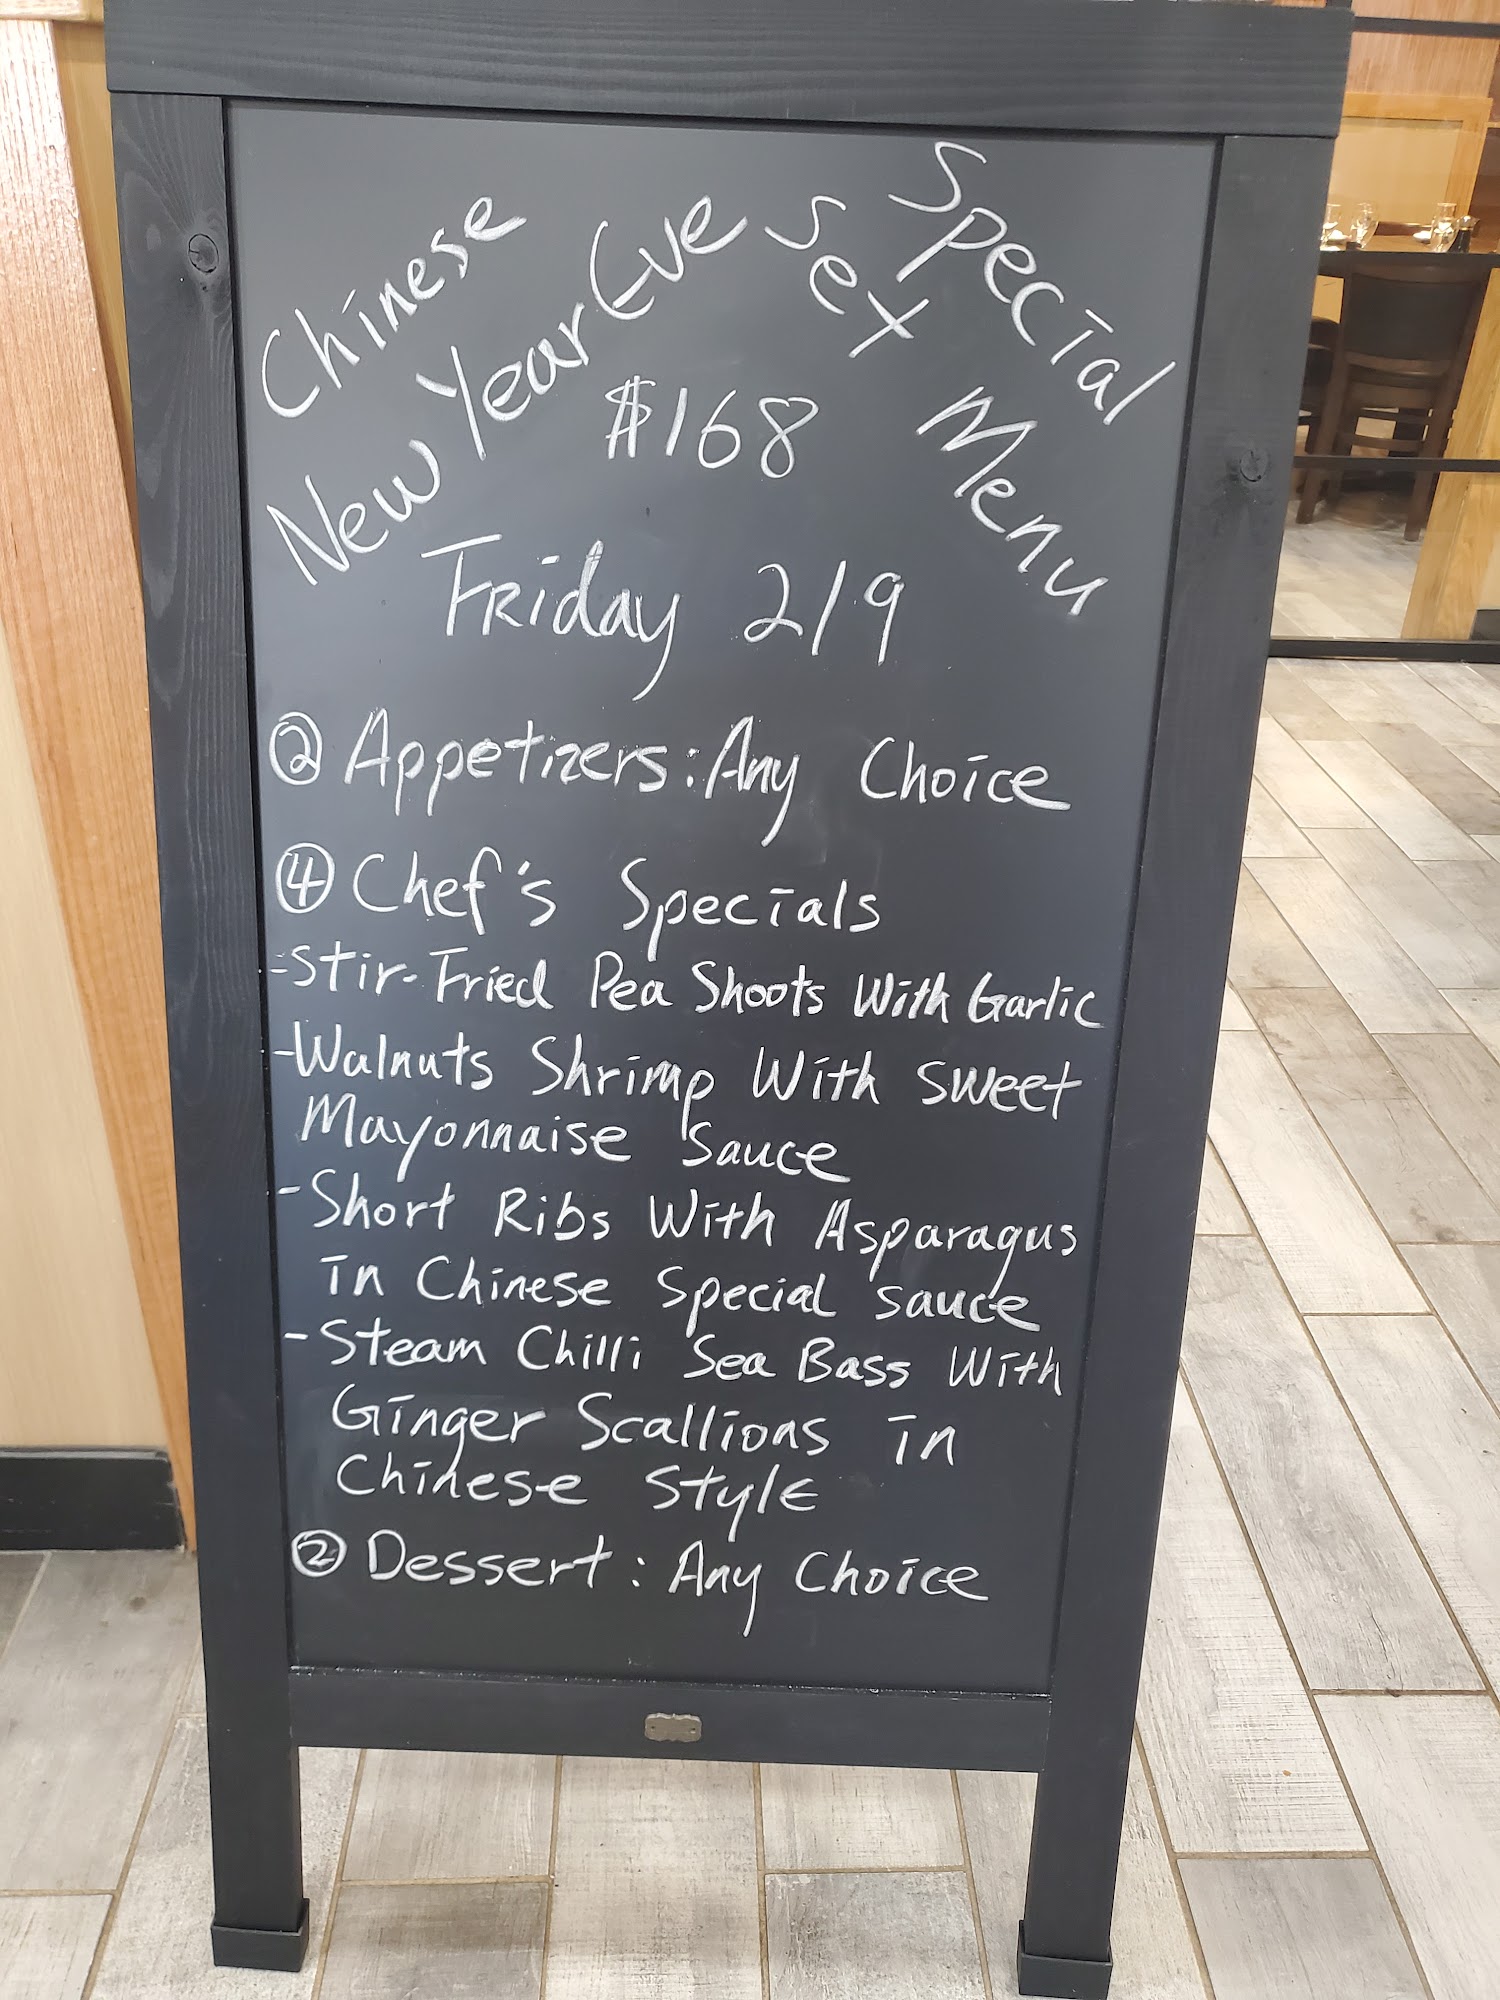 Chinese Special
New Year Eve Set Menu
$168
Friday 2/9
② Appetizers: Any Choice
④ Chef's Specials
-Stir-Fried Pea Shoots With Garlic
-Walnuts Shrimp With Sweet
Mayonnaise Sauce
-Short Ribs With Asparagus
in Chinese Special sauce
-Steam Chilli Sea Bass With
Ginger Scallions in
Chinese Style
② Dessert: Any Choice